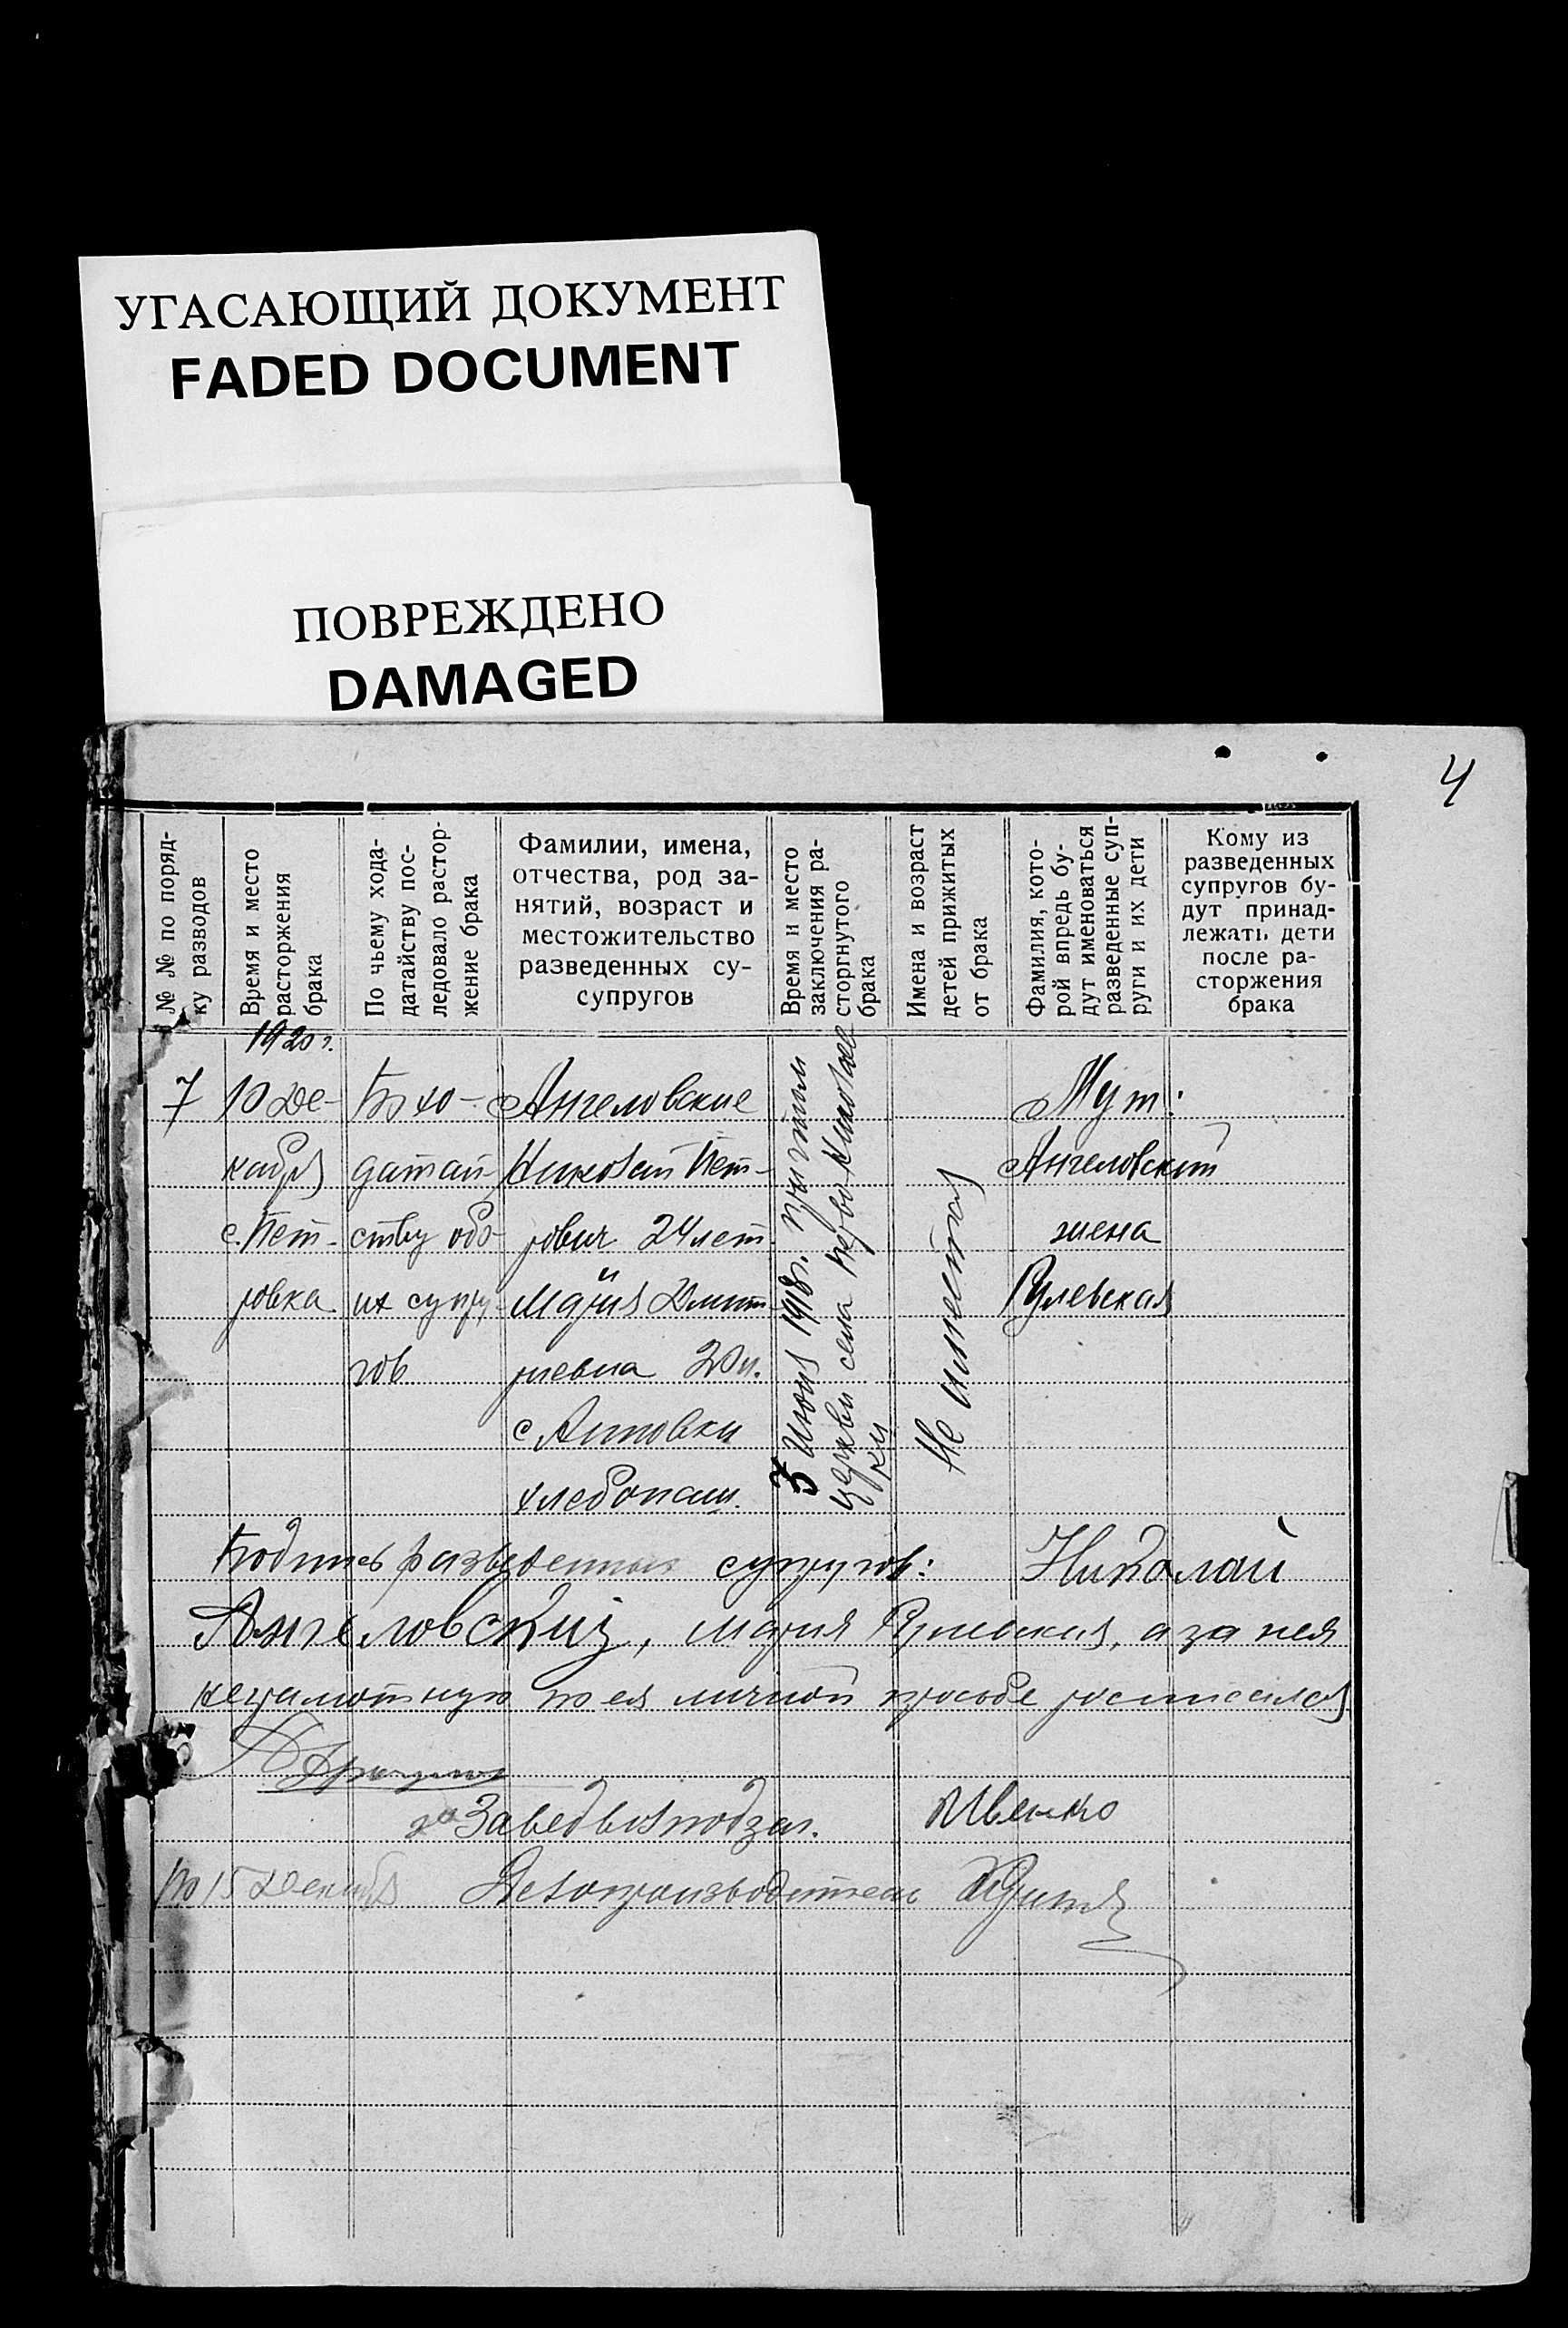 УГАСАЮЩИЙ ДОКУМЕНТ
FADED DOCUMENT
ПОВРЕЖДЕНО
DAMAGED
4
№ № по поряд-
ку разводов
Время и место
расторжения
брака
По чьему хода-
датайству пос-
ледовало растор-
жение брака
Фамилии, имена,
отчества, род за-
нятий, возраст и
местожительство
разведенных су-
супругов
Время и место
заключения ра-
сторгнутого
брака
Имена и возраст
детей прижитых
от брака
Фамилия, кото-
рой впредь бу-
дут именоваться
разведенные суп-
руги и их дети
Кому из
разведенных
супругов бу-
дут принад-
лежать дети
после ра-
сторжения
брака
1920 г.
7
10 Де-
кабря
с. Пет-
ровка
По хо-
датай-
ству обо-
их супру-
гов
Ангеловские
Николай Пет-
рович 24 лет
и
Мария Дмит-
риевна 20 л.
с. Антовки
хлебопаш.
3 Июня 1918 г. при
церкви села Ново-Николаев
ки
Не имеется
Муж:
Ангеловский
жена
Рулевская
Подпись разведенных супругов: Николай
Ангеловский, Мария Рулевская, а за нея
неграмотную по ея личной просьбе росписался
за Завед подъзаг. Ивенко
15 Декабря Делопроизводитель